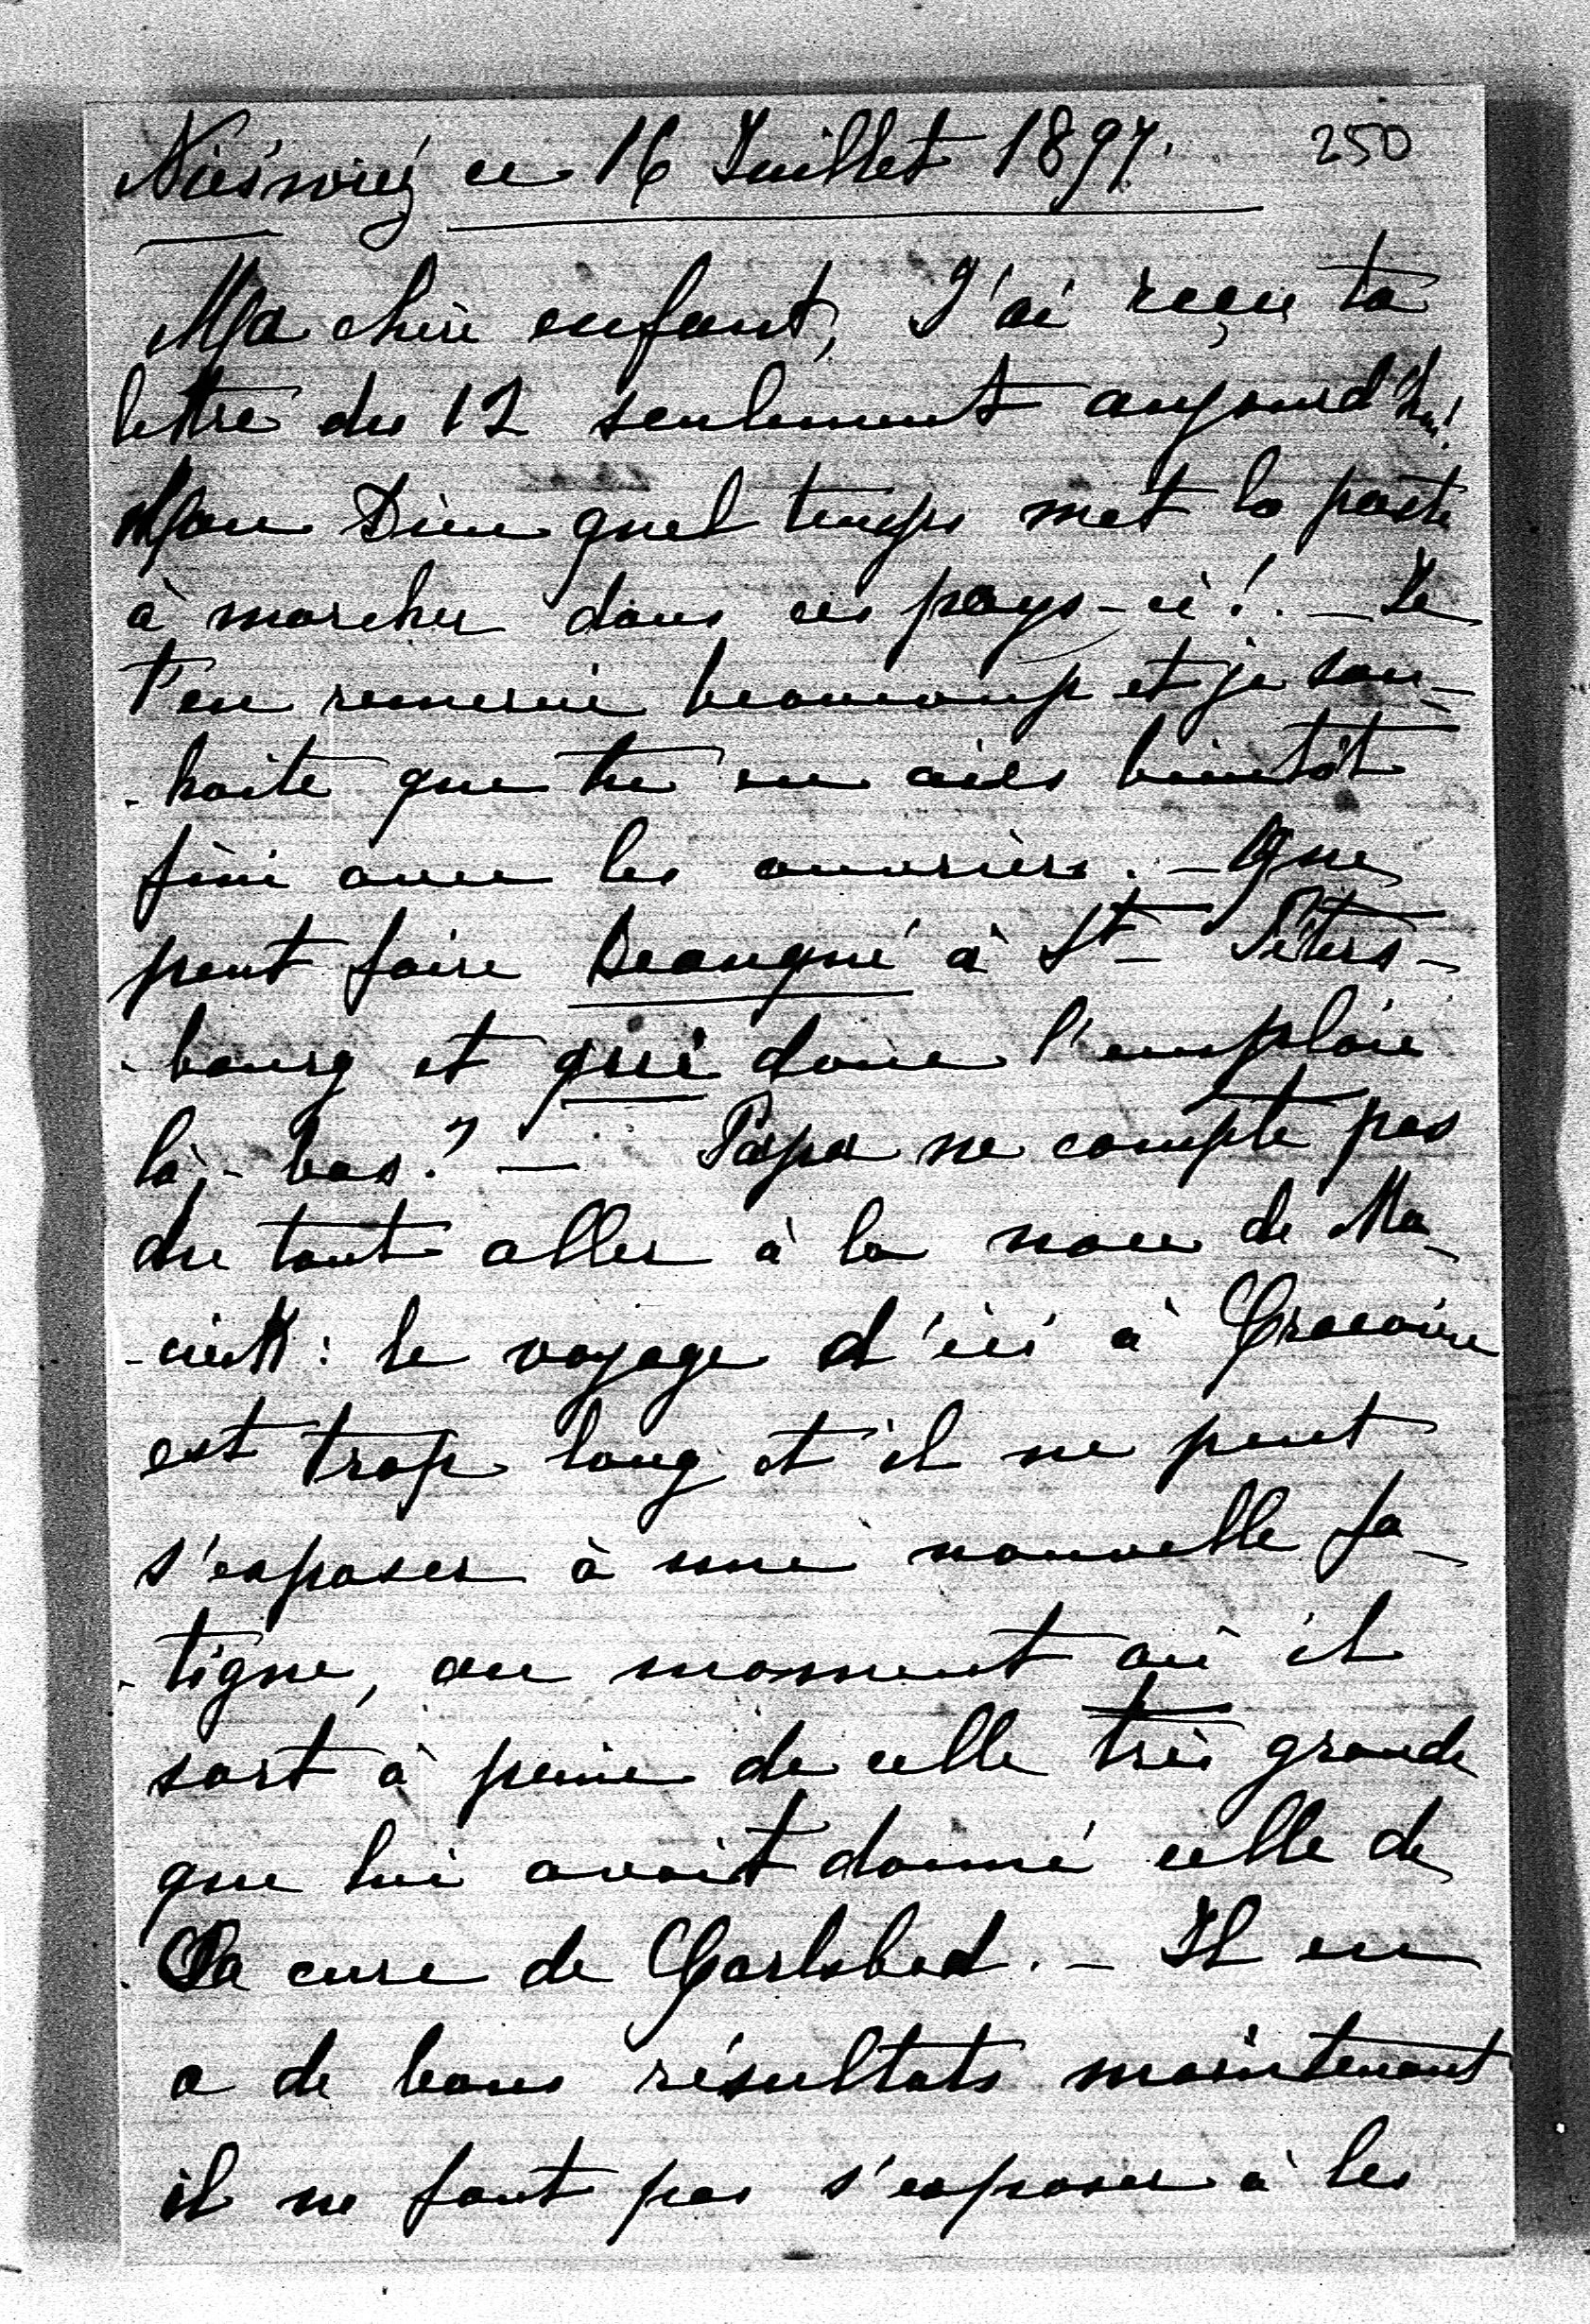 Nieśwież ce 16 Juillet 1897. 250
Ma chère enfant, J'ai reçu ta
lettre du 12 seulement aujourd'hui!
Mon Dieu quel temps met la poste
à marcher dans ces pays-ci! — Je
t'en remercie beaucoup et je sou-
-haite que tu en aies bientôt
fini avec les ouvriers. — Que
peut faire à St- Péters-
-bourg et qui donc l'emploie
là-bas? — Papa ne compte pas
du tout aller à la noce de Ma-
: le voyage d'ici à Cracovie
est trop long et il ne peut
s'exposer à une nouvelle fa-
-tigue, au moment où il
sort à peine de celle très grande
que lui avait donné celle de
la cure de Carlsbad. — Il en
a de bons résultats maintenant
il ne faut pas s'exposer à les